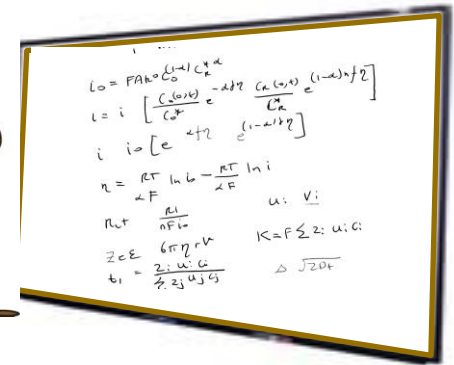 i₀ = FAk⁰C₀^(1-α) C_R^*α
i = i [C₀(0,t)/C₀* e^-αfη C_R(0,t)/C_R* e^(1-α)nfη]
i i₀[e^αfη e^(1-α)fη]
η = RT/αF ln i₀ - RT/αF ln i
Rct RT/nFi₀ uᵢ Vᵢ
zeε 6πηrv K = F Σ zᵢ uᵢ cᵢ
tᵢ = zᵢ uᵢ cᵢ / Σ zⱼ uⱼ cⱼ Δ √2Dt